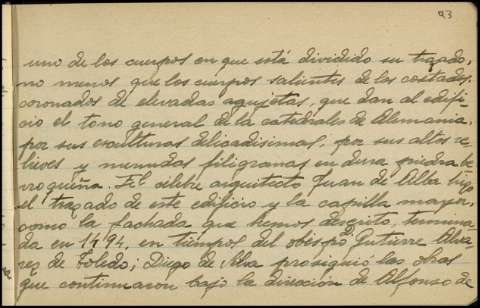 93
uno de los cuerpos en que está dividido su trazado,
no menos que los cuerpos salientes de los costados
coronados de elevadas agujetas, que dan al edifi-
cio el tono general de la catedrales de Alemania,
por sus esculturas delicadisimas, por sus altos re-
lieves y menudas filigranas en dura piedra be-
rroqueña. El célebre arquitecto Juan de Alba hizo
el trazado de este edificio y la capilla mayor,
como la fachada que hemos descrito, termina-
da en 1494, en tiempos del obispo Gutierre Alva-
rez de Toledo; Diego de Alva prosiguió las obras
que continuaron bajo la dirección de Alfonso de